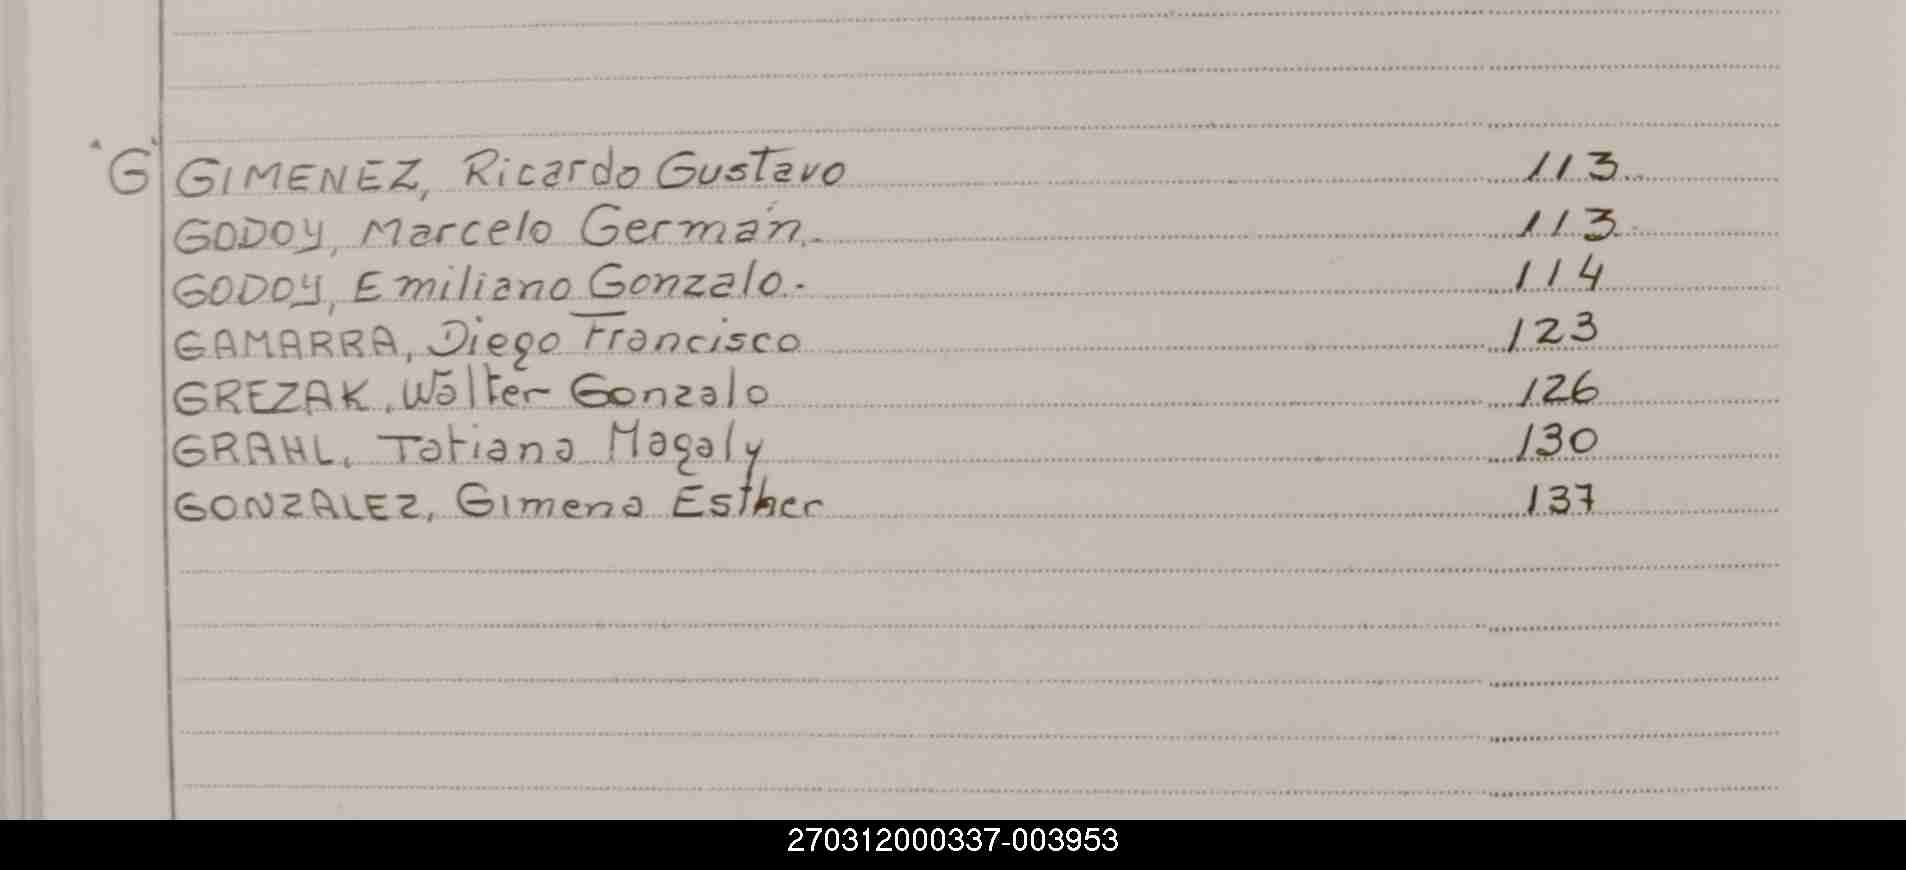 "G" GIMENEZ, Ricardo Gustavo 113
GODOY, Marcelo Germán. 113
GODOY, Emiliano Gonzalo. 114
GAMARRA, Diego Francisco 123
GREZAK, Walter Gonzalo 126
GRAHL, Tatiana Magaly 130
GONZALEZ, Gimena Esther 137
270312000337-003953